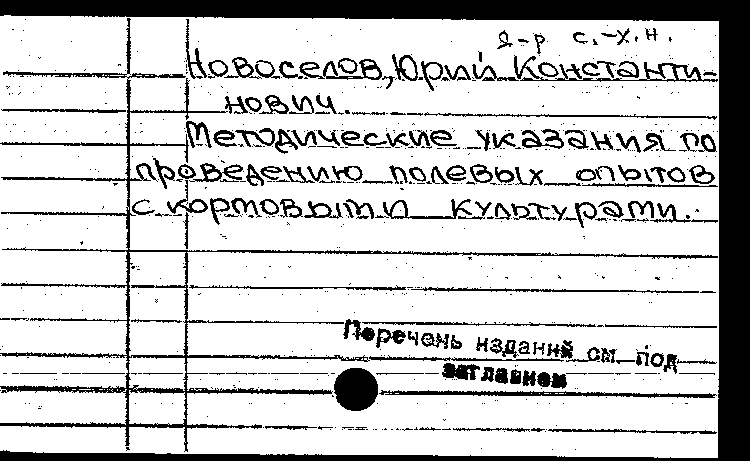 д-р с.-х.н.
Новоселов, Юрий Константи-
нович.
Методические указания по
проведению полевых опытов
с кормовыми культурами.
Перечень изданий см. под
заглавием